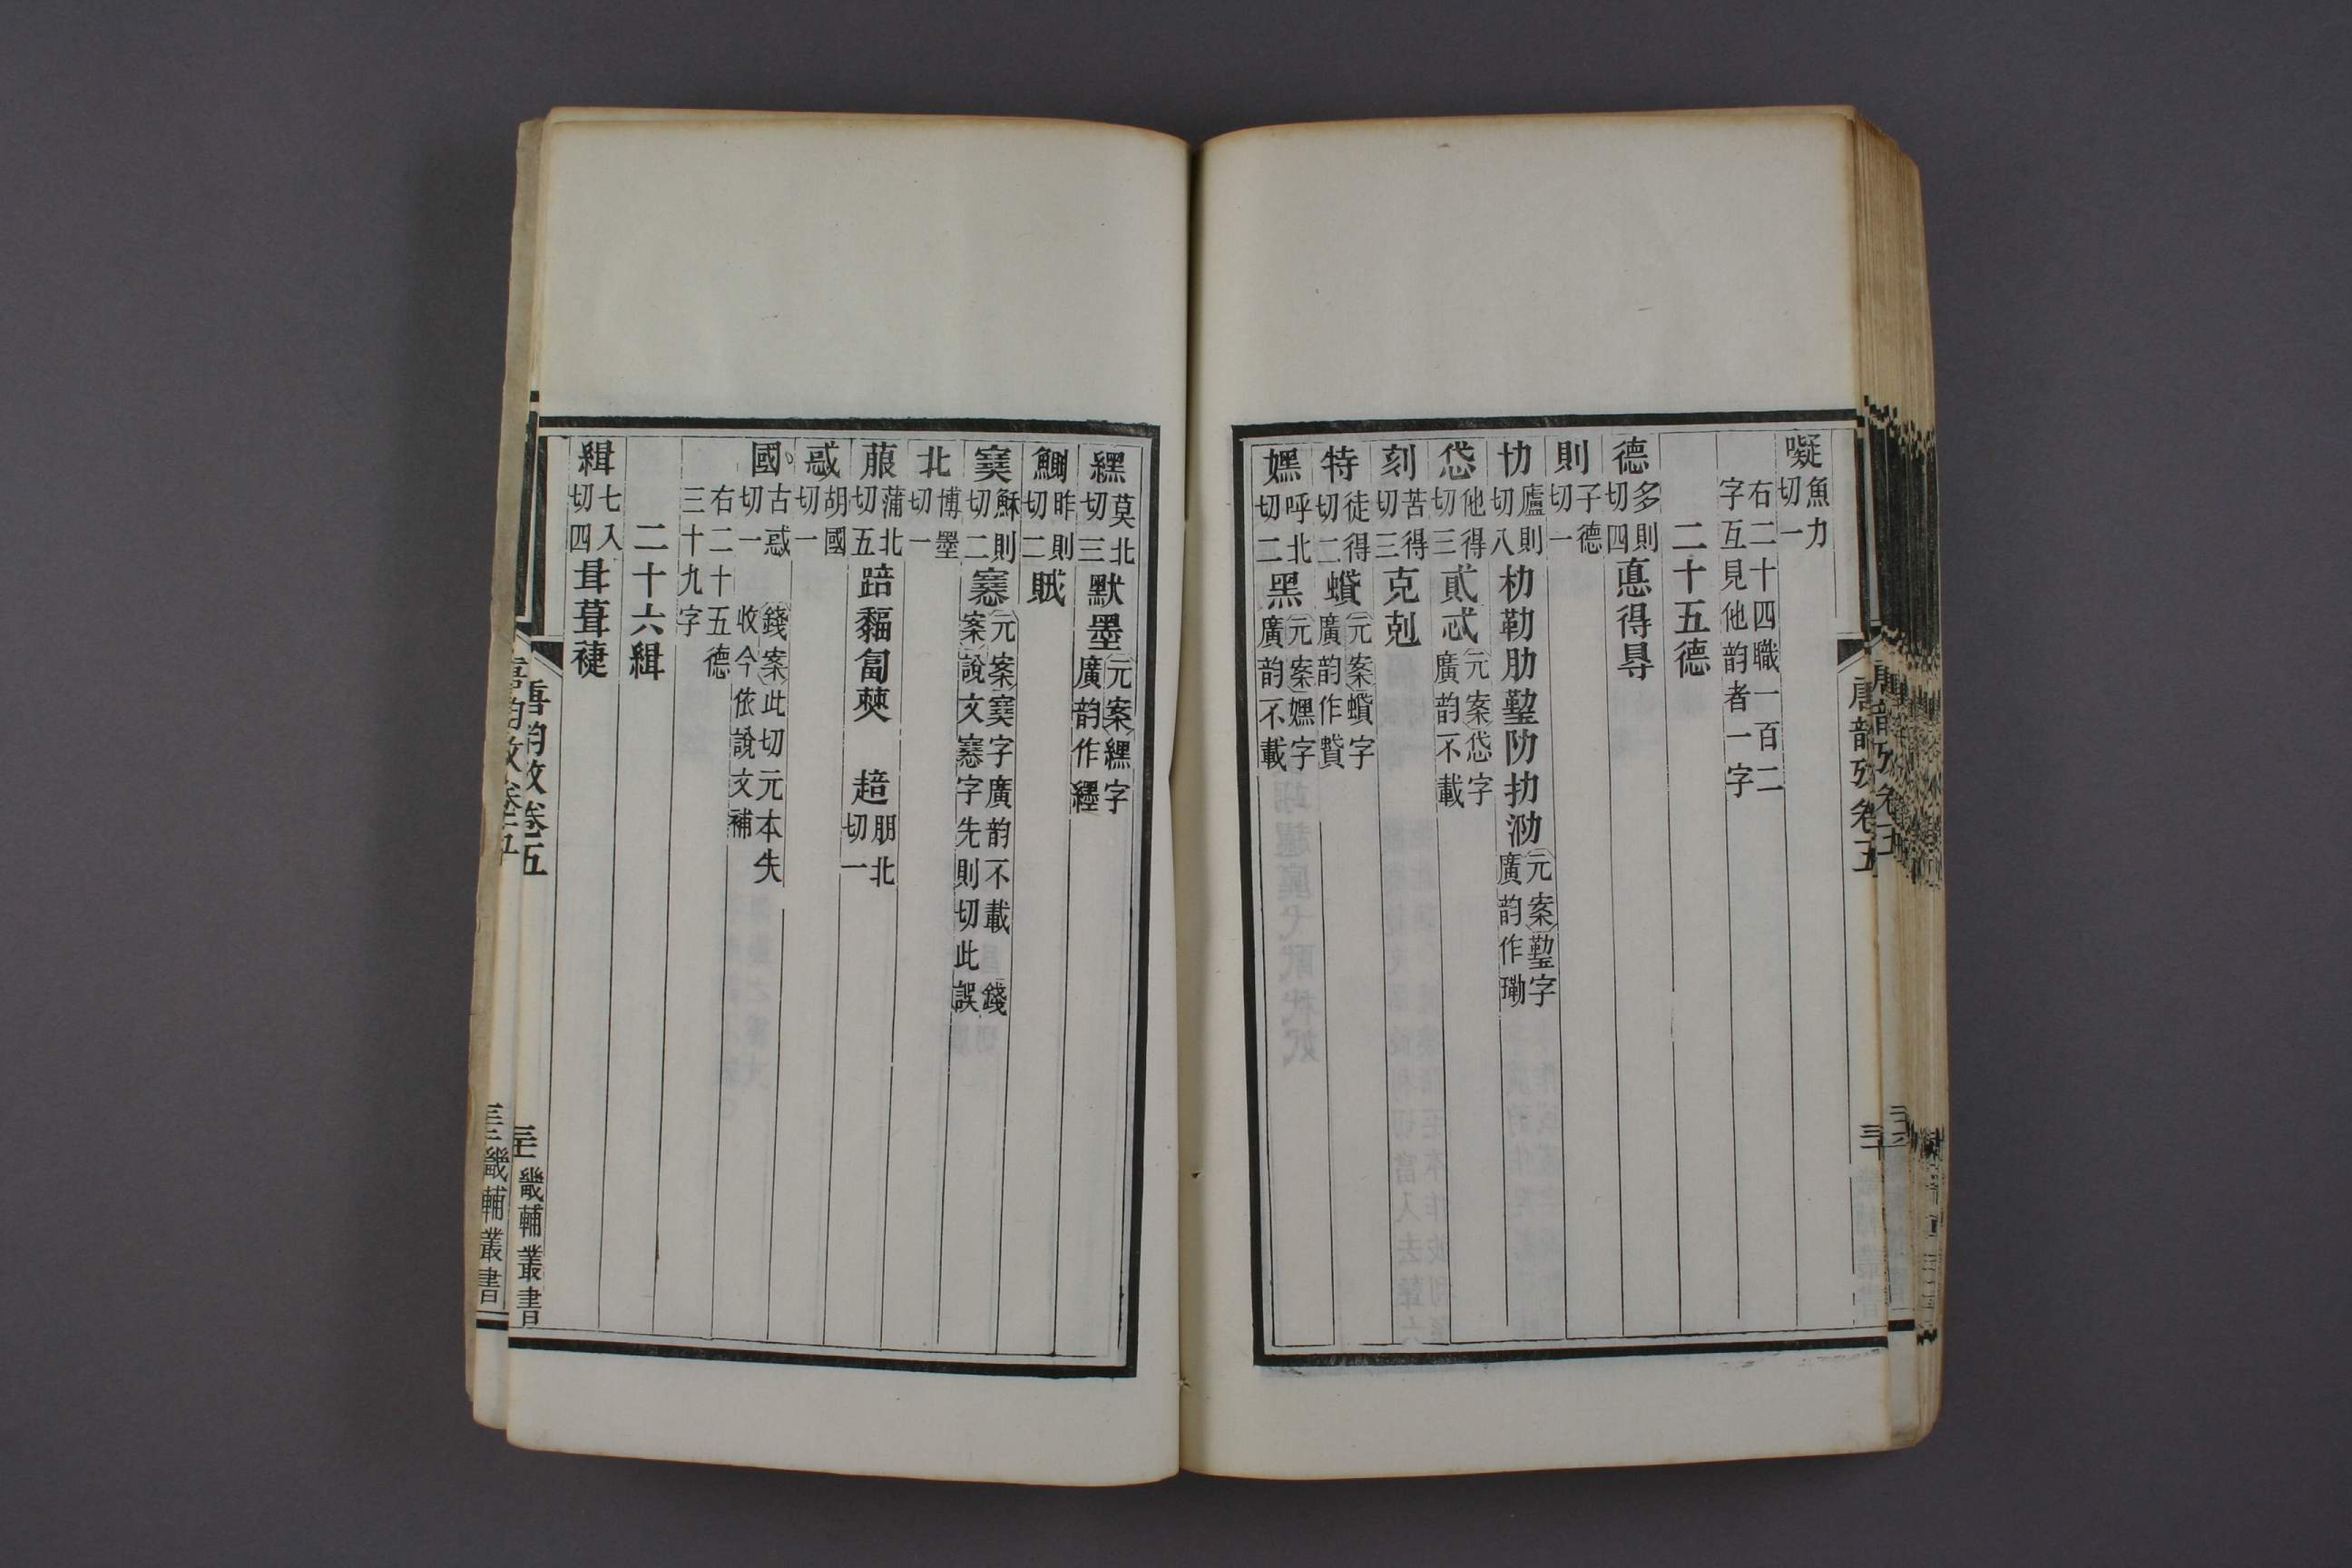 嶷魚力切一
右二十四職一百二字互見他韵者一字
二十五德
德多則切四悳得㝵
則子德切一
仂盧則切八朸勒肋勬阞扐泐元案勬字廣韵作瓅
岱他得切三貣忒元案岱字廣韵不載
刻苦得切三克剋
特徒得切二蟘元案蟘字廣韵作蟘
嫼呼北切二黑元案嫼字廣韵不載
纆莫北切三默墨元案纆字廣韵作纆
鰂昨則切二賊
塞穌則切二𡫳元案塞字廣韵不載 錢案說文𡫳字先則切此誤
北博墨切一
菔蒲北切五踣䵗匐僰 趌朋北切一
惑胡國切一
國古惑切一錢案此切元本失收今依說文補
右二十五德三十九字
二十六緝
緝七入切四咠葺𦂇
唐韵攷卷五
畿輔叢書